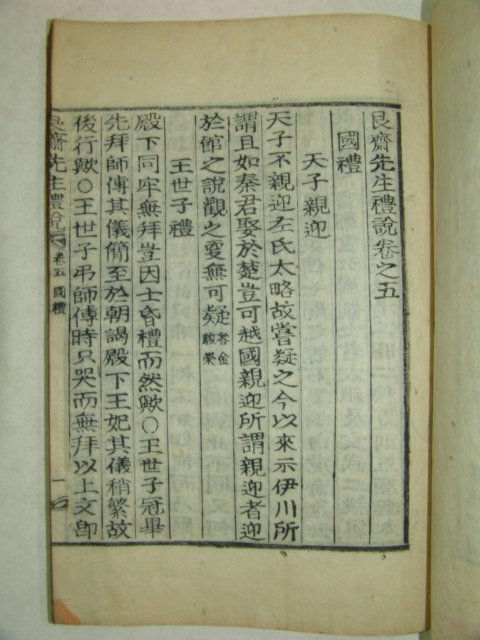 艮齋先生禮說卷之五
國禮
天子親迎
天子不親迎左氏太略故嘗疑之今以來示伊川所
謂且如秦君娶於楚豈可越國親迎所謂親迎者迎
於館之說觀之更無可疑答金駿榮
王世子禮
殿下同牢無拜豈因士昏禮而然歟〇王世子冠畢
先拜師傅其儀簡至於朝謁殿下王妃其儀稍繁故
後行歟〇王世子弔師傅時只哭而無拜以上文卽
艮齋先生禮說 卷五 國禮 一